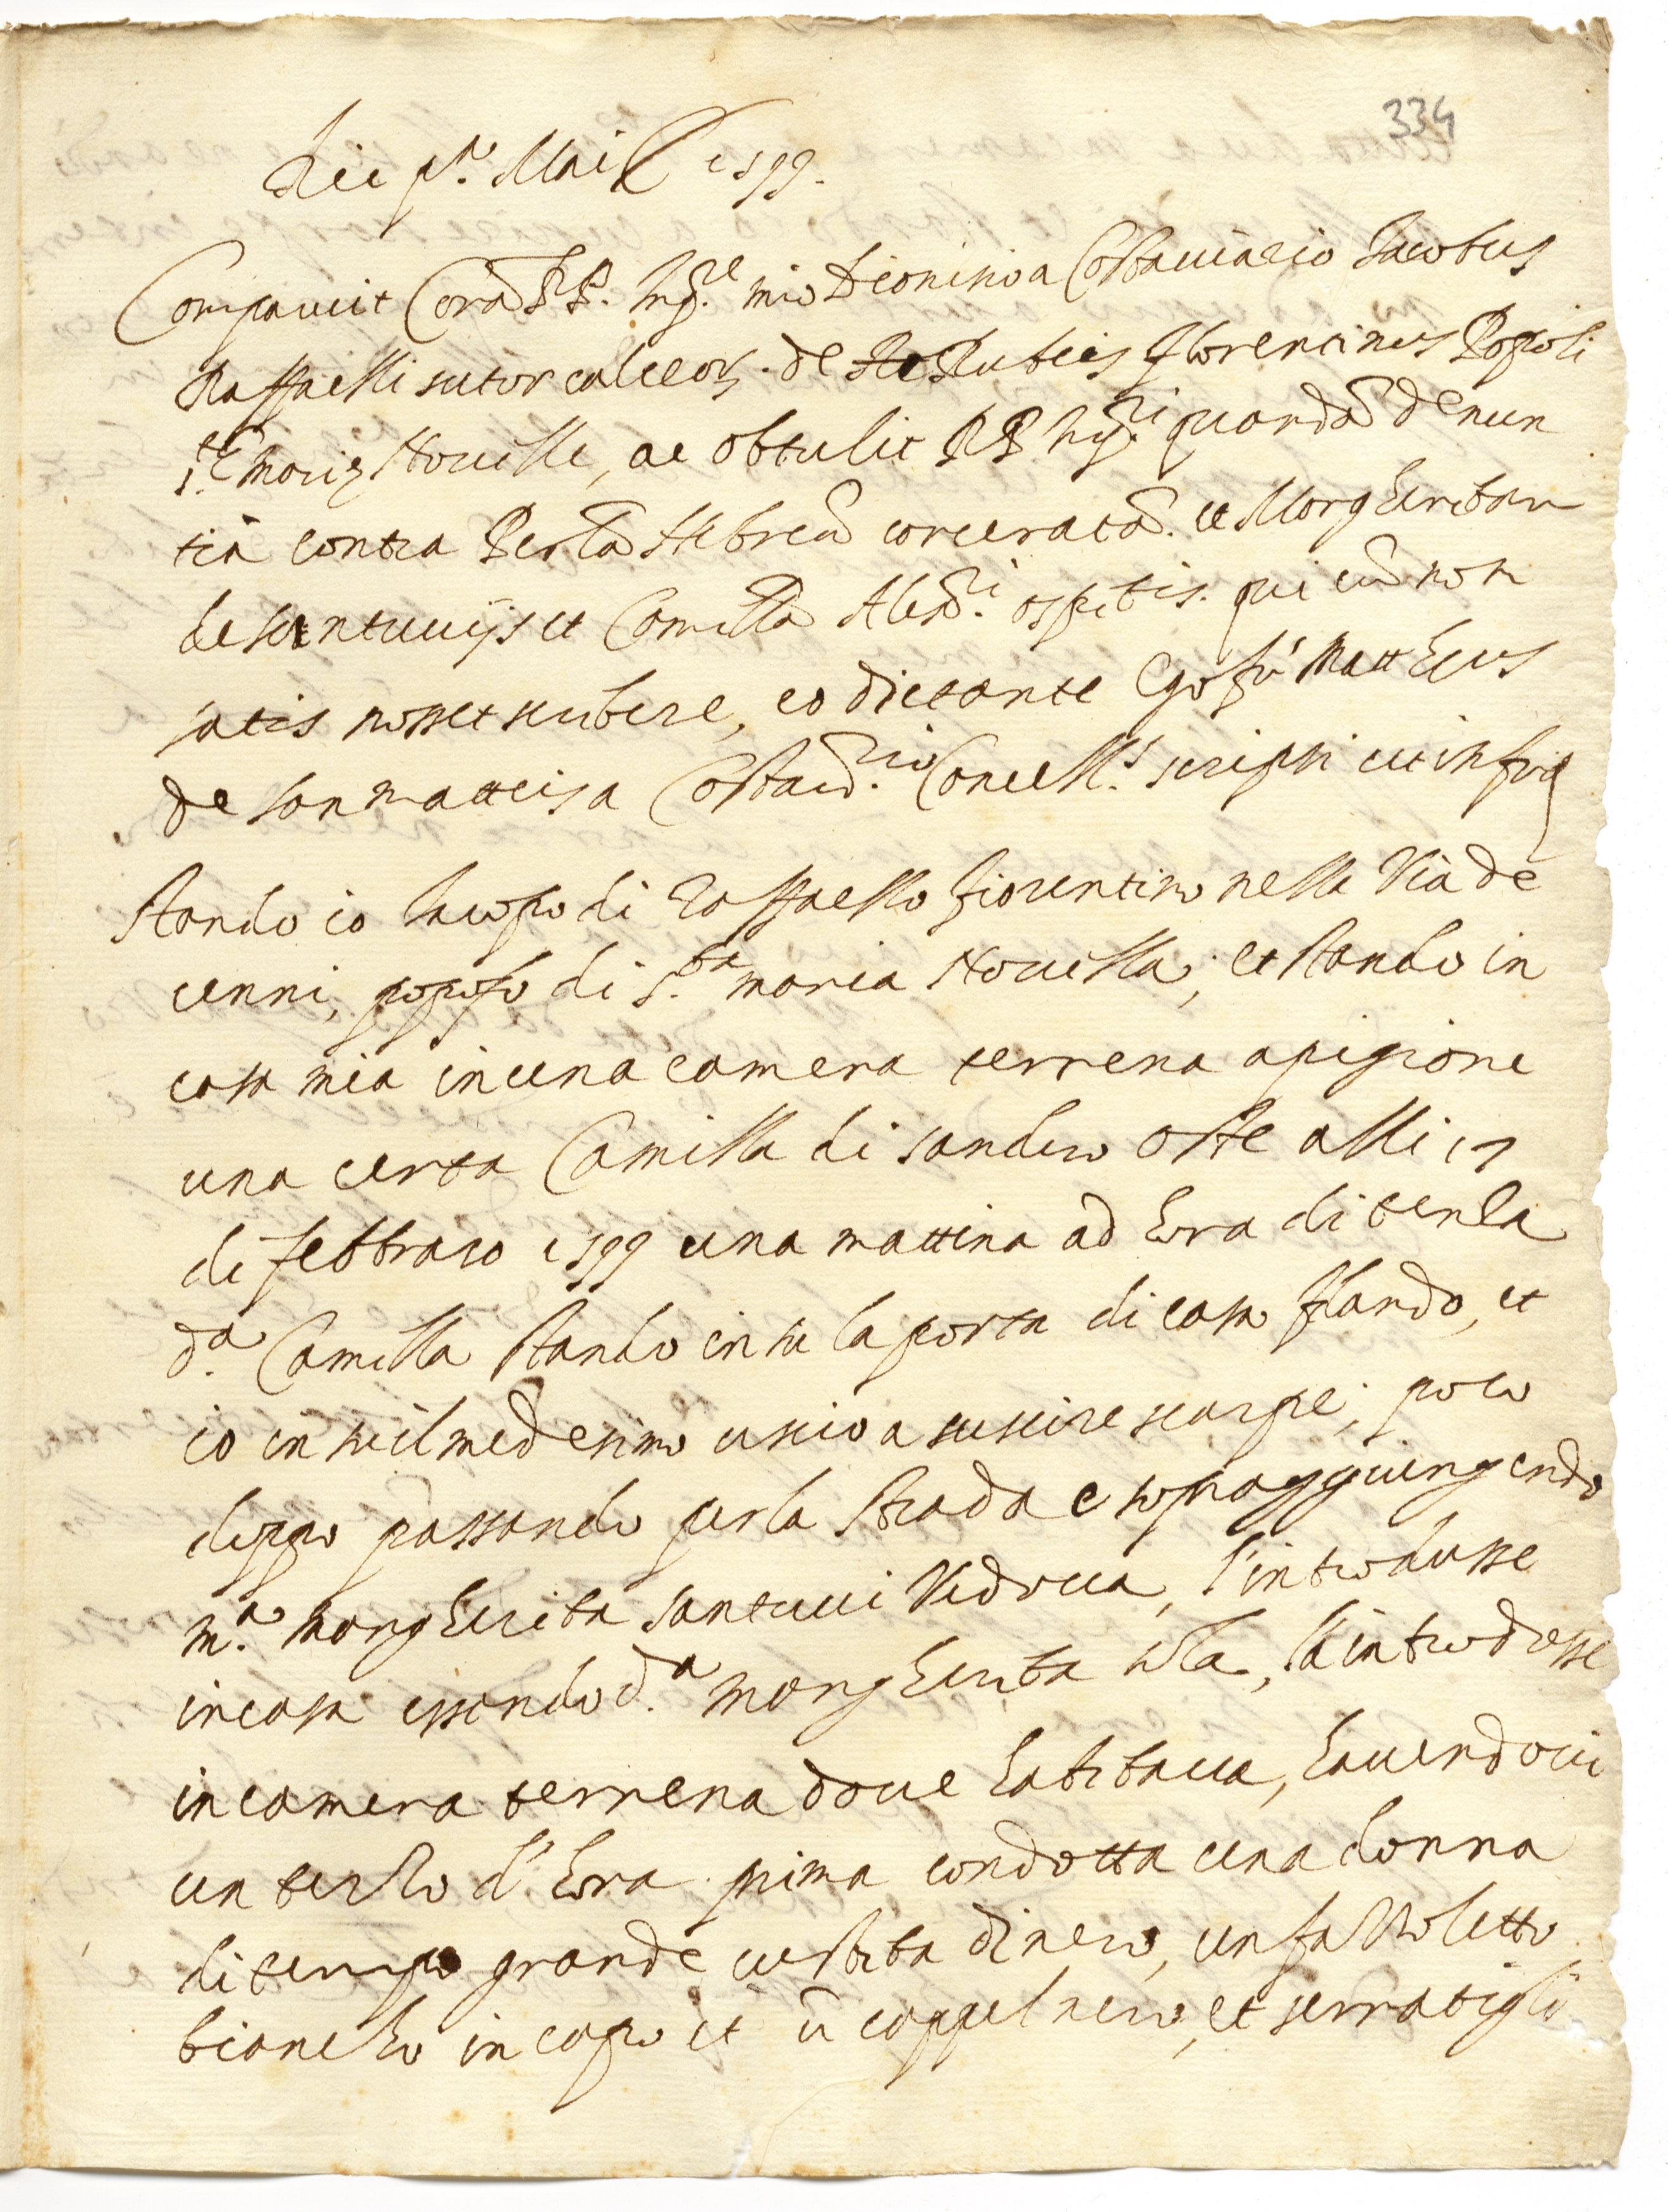 334
Die p.ª Maij 1599.
Comparuit Corã P.P. Inq.re mio Dionisio a Costacciario Jacobus
Raffaelli sutor calceor. de Rubeis florentinus Popoli
s.te Marię Novelle, ac obtulit P.P. Inq.ri quandã denun
tiã contra Perlã Hebreã carceratã. et Margheritam
de Santuccijs et Camillã Alex.ri ospitis. qui cũ non
satis posset scribere, eo dictante Ego fr. Mattheus
de Sanmatteis a Costac.rio Cancell.s scripsi ut infrą
Stando io Iacopo di Raffaello fiorentino nella Via de
cenni, popolo di S.ta Maria Novella, et stando in
casa mia in una camera terrena a pigione
una certa Camilla di Sandro oste alli 17
di febbraro 1599 una mattina ad hora di terza
d.ª Camilla stando in su la porta di casa filando, et
io in su il medesimo uscio a cuscire scarpe, poco
doppo passando per la strada e sopraggiungendo
m.ª Margherita Santucci Vedova, l'introdusse
in casa essendo d.ª Margherita sola, la introdusse
in camera terrena dove habitava, havendovi
un terzo d'hora prima condotta una donna
di tempo grande vestita di nero, un fazzoletto
biancho in capo et ũ cappel nero, et serratigli